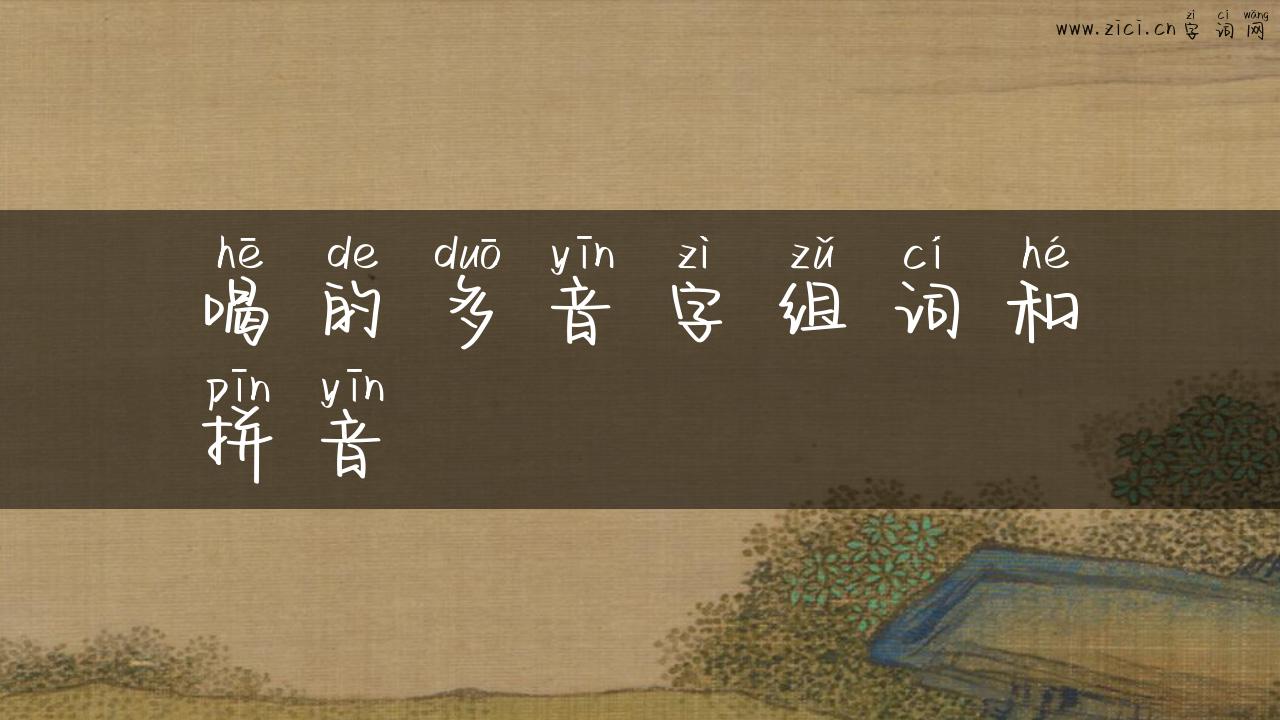 zì cí wǎng
www.zici.cn 字词网
hē de duō yīn zì zǔ cí hé
喝的多音字组词和
pīn yīn
拼音